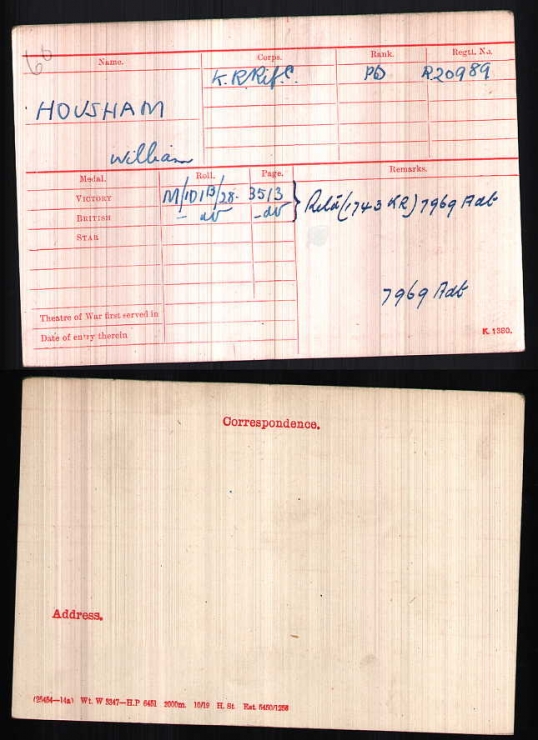 Name. Corps. Rank. Regtl. No.
K.R.Rif.C. R20989
HOUSHAM
William
Medal. Roll. Page. Remarks.
VICTORY M/101B/28. 3513
BRITISH - do - do
(1743 KR) 7969 Adt
STAR
7969 Adt
Theatre of War first served in
Date of entry therein
K. 1380.
Correspondence.
Address.
(25454—14a) Wt. W 5347—H.P 6451 2000m. 10/19 H. St.